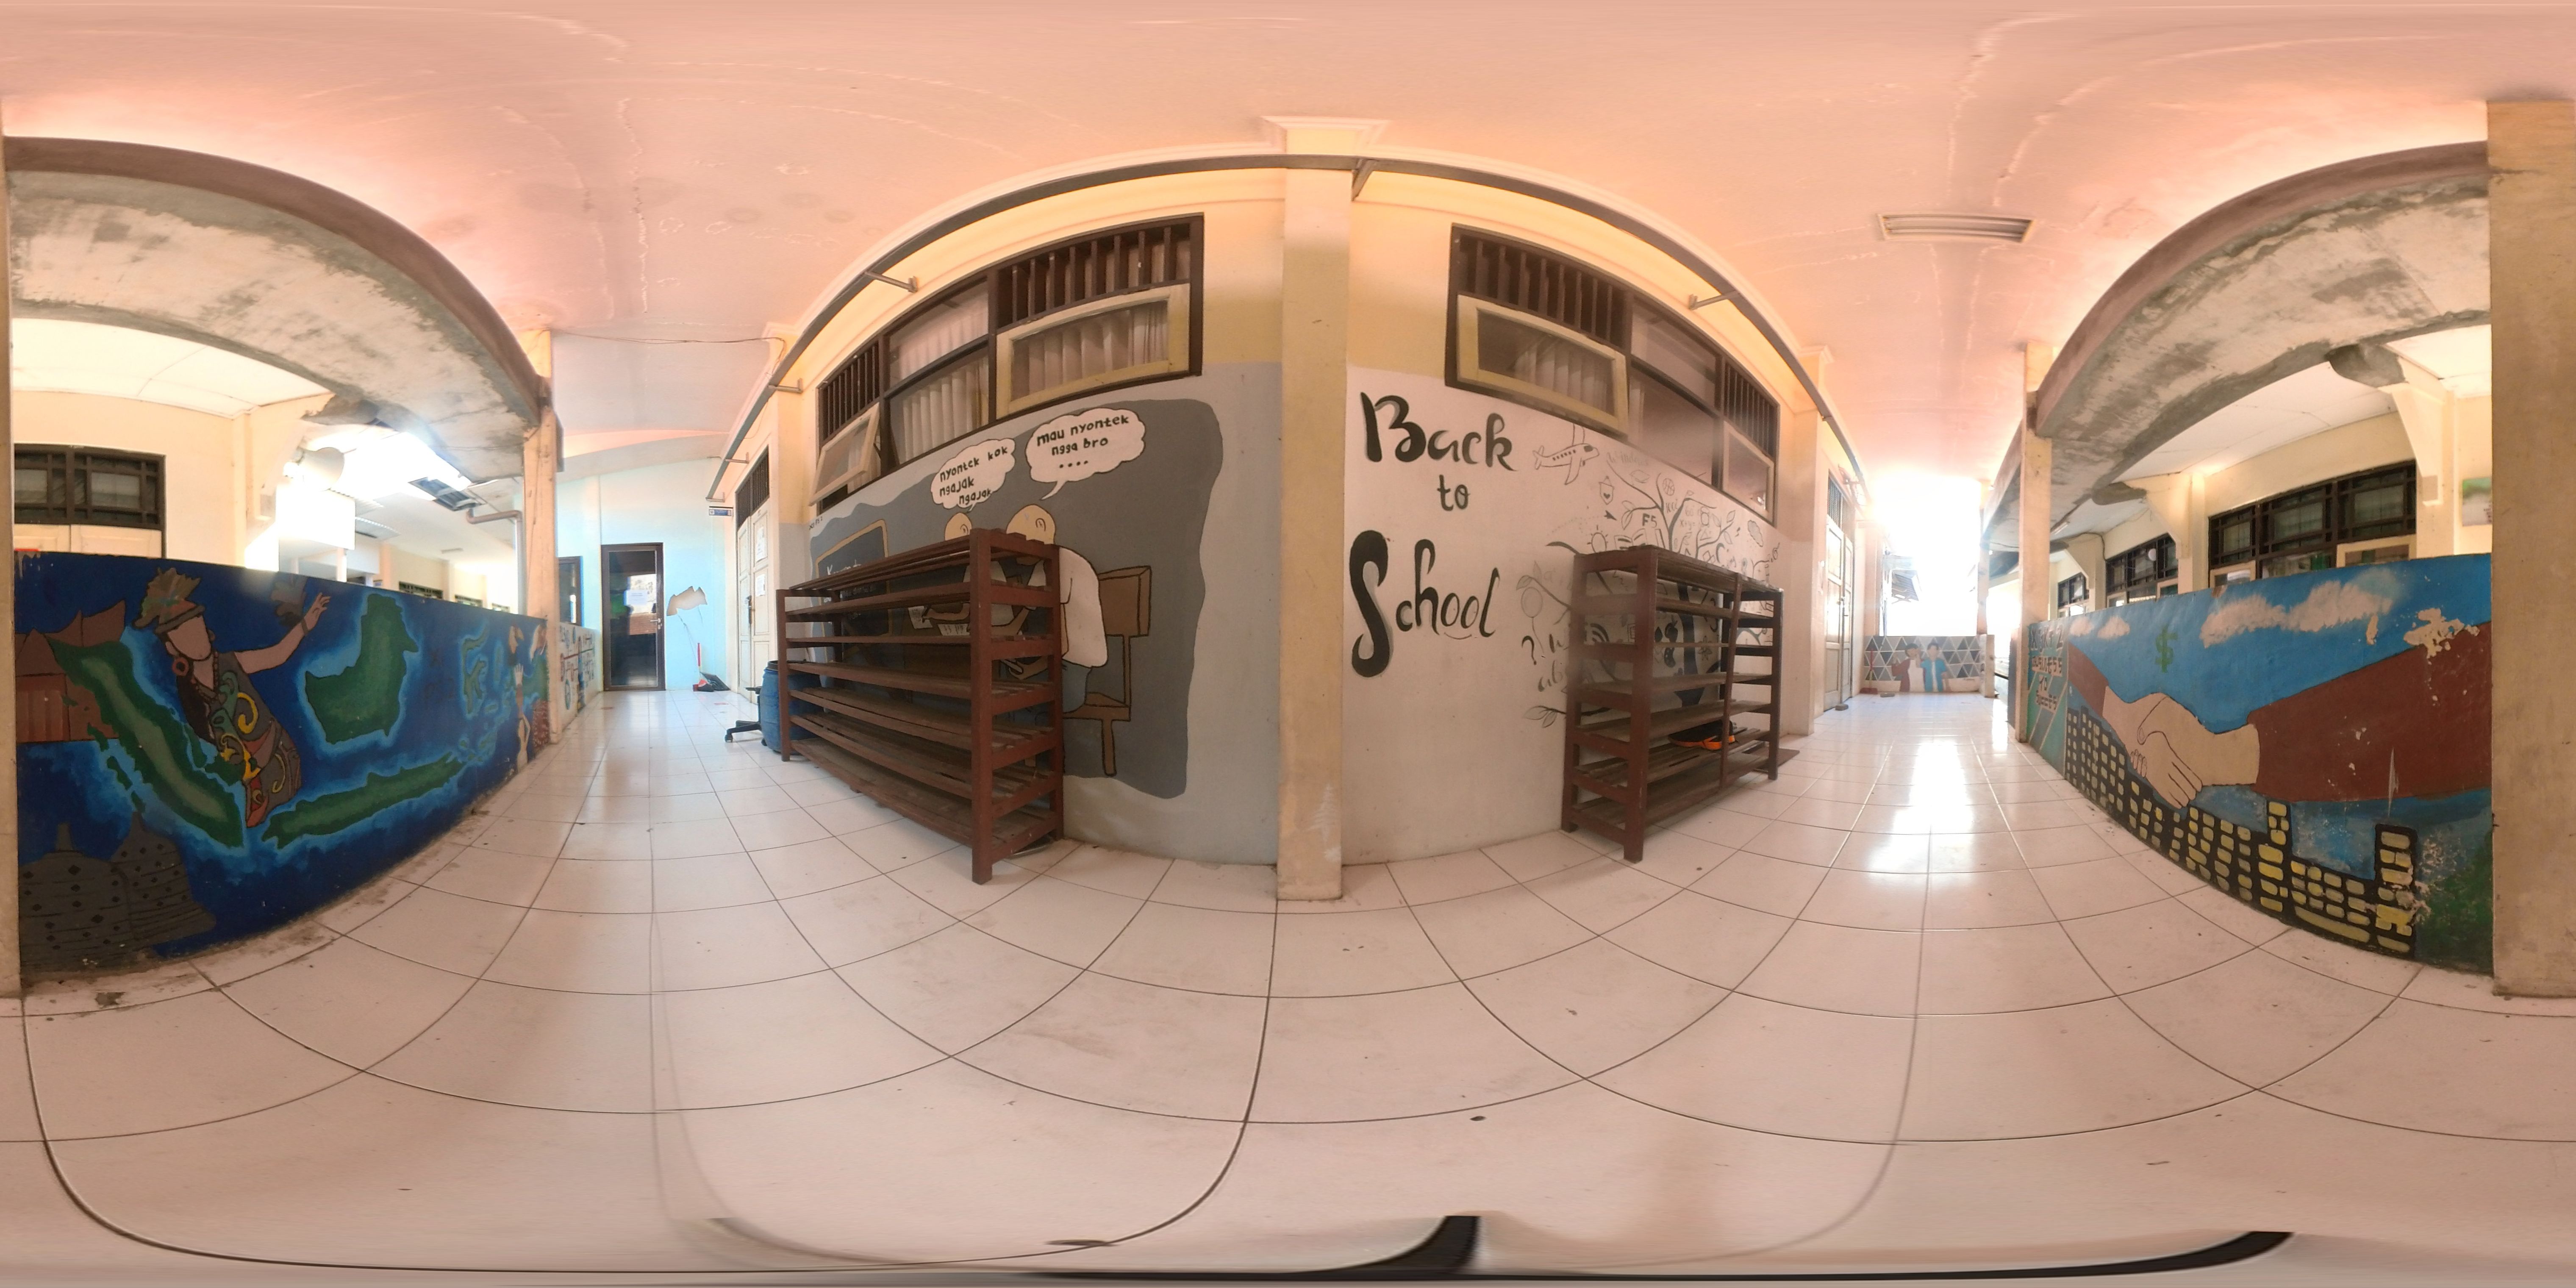 nyontek kok
ngajak
ngajak
mau nyontek
ngga bro
....
Back
to
School
F5
$